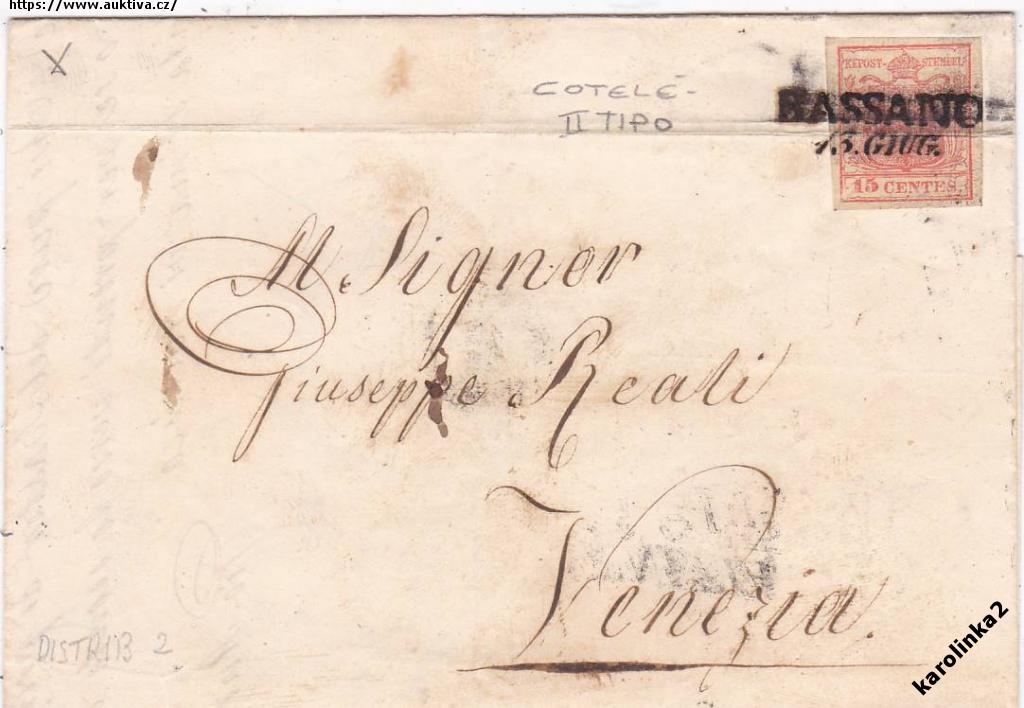 https://www.auktiva.cz/
X
COTELE-
II TIPO
KKPOST-STEMPEL
BASSANO
15. GIUG.
15 CENTES.
Al Signor
Giuseppe Reali
Venezia.
DISTRIB 2
karolinka2